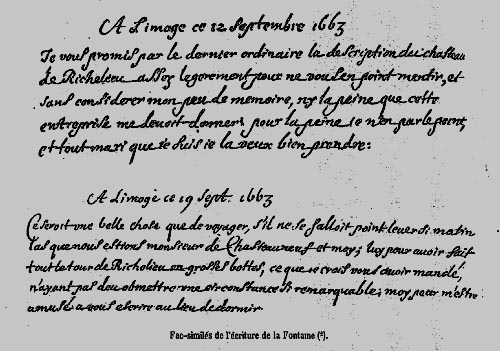 A Limoge ce 12 Septembre 1663
Je vous promis par le dernier ordinaire la description du chasteau
de Richelieu assez legerement pour ne vous en point mentir, et
sans considerer mon peu de memoire, ny la peine que cette
entreprise me devoit donner; pour la peine je n'en parle point,
et tout mari que je suis je la veux bien prendre:
A Limoge ce 19 Sept. 1663
Ce seroit une belle chose que de voyager, s'il ne se falloit point lever si matin
Las que nous estions monsieur de Chasteauneuf et moy; luy pour avoir fait
tout le tour de Richelieu en grosses bottes, ce que je crois vous avoir mandé,
n'ayant pas deu obmettre une circonstance si remarquable; moy pour m'estre
amusé a vous escrire au lieu de dormir
Fac-similés de l'écriture de la Fontaine (²).